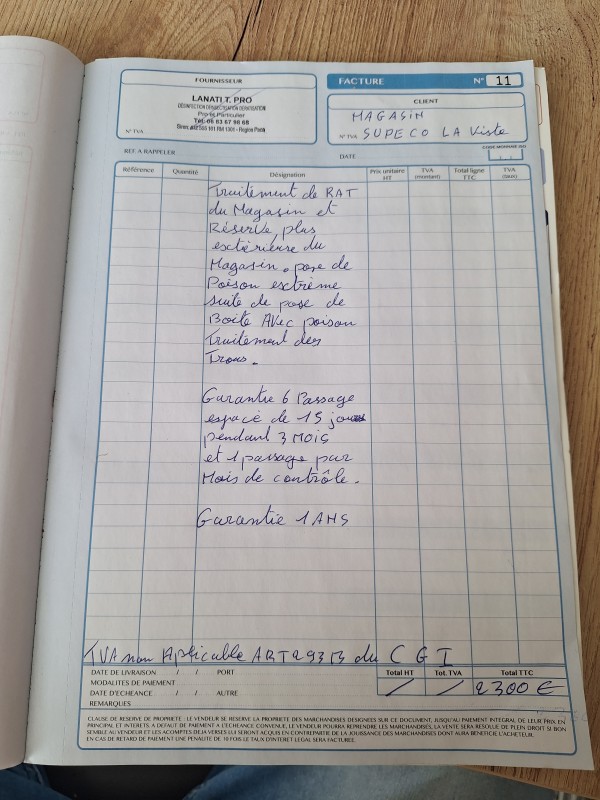 FOURNISSEUR
LANATI T. PRO
Tél: 06 63 67 98 68
N° TVA
FACTURE N° 11
CLIENT
MAGASIN
N° TVA SUPECO LA Viste
REF. A RAPPELER
DATE
CODE MONNAIE ISO
Référence Quantité Désignation Prix unitaire HT TVA (montant) Total ligne TTC TVA (taux)
Traitement de RAT
du Magasin et
Réserve, plus
extérieuse du
Magasin. pose de
Poison extrème
suite de pose de
Boite Avec poison
Traitement des
Trous.
Garantie 6 Passage
espacé de 15 jours
pendant 3 MOIS
et 1 passage par
Mois de contrôle.
Garantie 1 ANS
TVA non Aplicable ART 293 B du C G I
DATE DE LIVRAISON / / PORT
MODALITES DE PAIEMENT
DATE D'ECHEANCE / / AUTRE
REMARQUES
Total HT Tot. TVA Total TTC
/ / 2300 €
CLAUSE DE RESERVE DE PROPRIETE : LE VENDEUR SE RESERVE LA PROPRIETE DES MARCHANDISES DESIGNEES SUR CE DOCUMENT, JUSQU'AU PAIEMENT INTEGRAL DE LEUR PRIX, EN
PRINCIPAL ET INTERETS. A DEFAUT DE PAIEMENT A L'ECHEANCE CONVENUE, LE VENDEUR POURRA REPRENDRE LES MARCHANDISES, LA VENTE SERA RESOLUE DE PLEIN DROIT SI BON
SEMBLE AU VENDEUR ET LES ACOMPTES DEJA VERSES LUI SERONT ACQUIS EN CONTREPARTIE DE LA JOUISSANCE DES MARCHANDISES DONT AURA BENEFICIE L'ACHETEUR.
EN CAS DE RETARD DE PAIEMENT UNE PENALITE DE 10 FOIS LE TAUX D'INTERET LEGAL SERA FACTUREE.